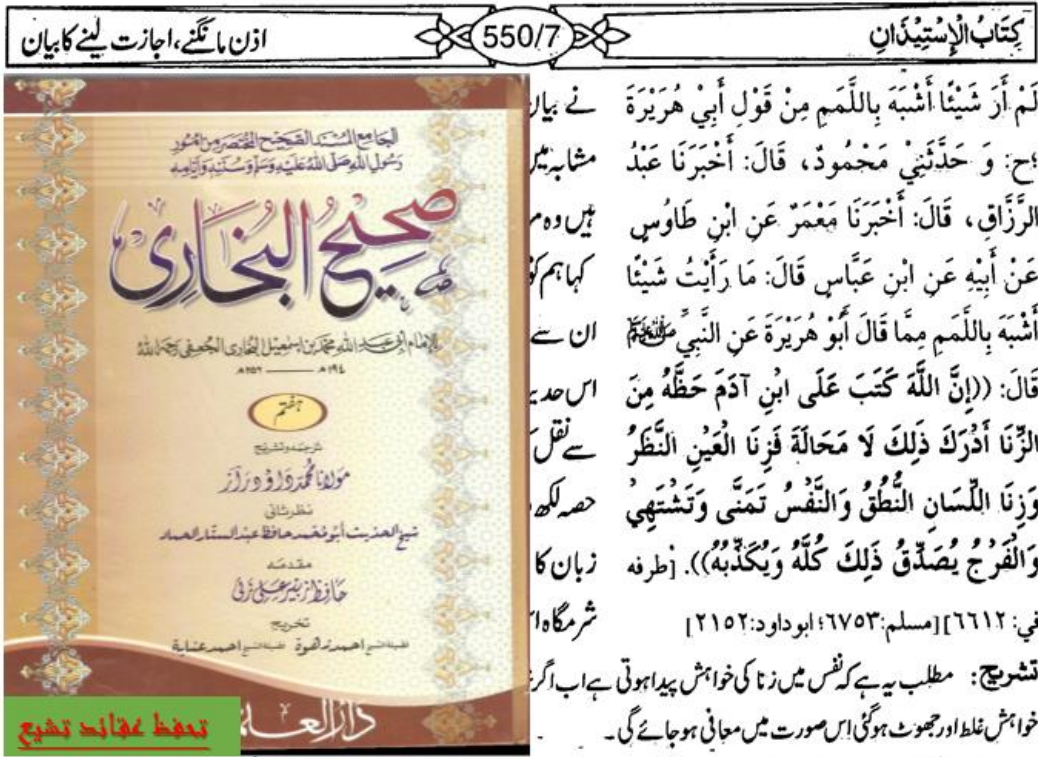 كِتَابُ الْإِسْتِيْذَانِ
550/7
اذن مانگنے، اجازت لینے کا بیان
لَمْ أَرَ شَيْئًا أَشْبَهَ بِاللَّمَمِ مِنْ قَوْلِ أَبِي هُرَيْرَةَ
؛ح: وَ حَدَّثَنِيْ مَحْمُودٌ، قَالَ: أَخْبَرَنَا عَبْدُ
الرَّزَّاقِ، قَالَ: أَخْبَرَنَا مَعْمَرٌ عَنِ ابْنِ طَاوُسٍ
عَنْ أَبِيْهِ عَنِ ابْنِ عَبَّاسٍ قَالَ: مَا رَأَيْتُ شَيْئًا
أَشْبَهَ بِاللَّمَمِ مِمَّا قَالَ أَبُوْ هُرَيْرَةَ عَنِ النَّبِيِّ ﷺ
قَالَ: ((إِنَّ اللَّهَ كَتَبَ عَلَى ابْنِ آدَمَ حَظَّهُ مِنَ
الزِّنَا أَدْرَكَ ذَلِكَ لَا مَحَالَةَ فَزِنَا الْعَيْنِ النَّظَرُ
وَزِنَا اللِّسَانِ النُّطْقُ وَالنَّفْسُ تَمَنَّى وَتَشْتَهِيْ
وَالْفَرْجُ يُصَدِّقُ ذَلِكَ كُلَّهُ وَيُكَذِّبُهُ)). [طرفه
في: ٦٦١٢][مسلم: ٦٧٥٣؛ ابوداود: ٢١٥٢]
نے بیان
مشابہ میں
ہیں وہ
کہا ہم
ان سے
اس
سے نقل
حصہ لکھ
زبان کا
شرمگاہ
تشریح: مطلب یہ ہے کہ نفس میں زنا کی خواہش پیدا ہوتی ہے اب اگر
خواہش غلط اور جھوٹ ہوگئی اس صورت میں معافی ہو جائے گی۔
الجامع المسند الصحيح المختصر من أمور
رسول الله صلى الله عليه وسلم وسننه وأيامه
صحیح البخاری
للإمام أبي عبد الله محمد بن إسمعيل البخاري الجعفي رحمه الله
١٩٤ھ ـــــ ٢٥٦ھ
ہفتم
ترجمہ و تشریح
مولانا محمد داؤد راز
نظر ثانی
شیخ الحدیث أبو محمد حافظ عبد الستار الحماد
مقدمہ
حافظ زبیر علی زئی
تخریج
فضیلۃ الشیخ احمد زهوة فضیلۃ الشیخ احمد عناية
دار العلم
تحفظ عقائد تشیع